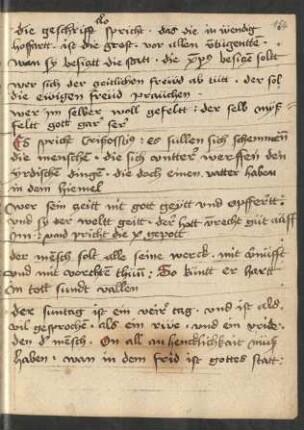 die geschrifft spricht · das die in wendig
hoffart · ist die gröst · vor allen
wan sy besiczt die statt · die xp̄us besiczen solt
wer sich der zeitlichen freiwd ab tutt · der sol
die ewigen freud prauchen ·
wer im selber woll gefelt : der selb
felt gott gar ser
Es spricht : es sullen sich schemmen
die mensche · die sich vntter werffen den
yrdische dinge · die doch einen vatter haben
in dem hiemel
wer sein zeitt mit gott zeytt vnd opffertt :
vnd sy der welt geitt · der hatt vnrecht gůt auff
im : vnd pricht die x gepott
der mēsch solt alle seine werck · mit
vnd mit vorchten thun : So kumt er hart
in tott sundt vallen
der suntag ist ein tag · vnd ist als
vil gesprochē · als ein rwe · vnd ein fride ·
den d' mēsch · On all anhencklichkait mus
haben · wan in dem frid ist gottes statt :